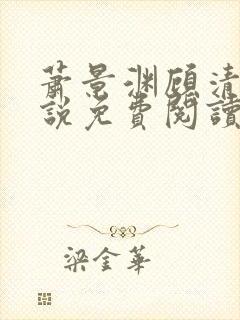 蕭景渊顾清
說免費閱讀
梁金華